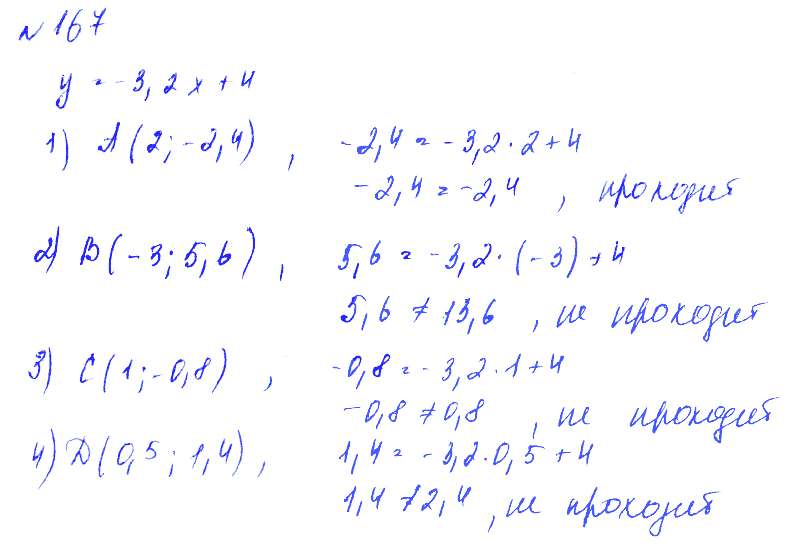 №167
y = -3,2x + 4
1) A(2; -2,4), -2,4 = -3,2·2+4
-2,4 = -2,4, проходит
2) B(-3; 5,6), 5,6 = -3,2·(-3)+4
5,6 ≠ 13,6, не проходит
3) C(1; -0,8), -0,8 = -3,2·1+4
-0,8 ≠ 0,8, не проходит
4) D(0,5; 1,4), 1,4 = -3,2·0,5+4
1,4 ≠ 2,4, не проходит